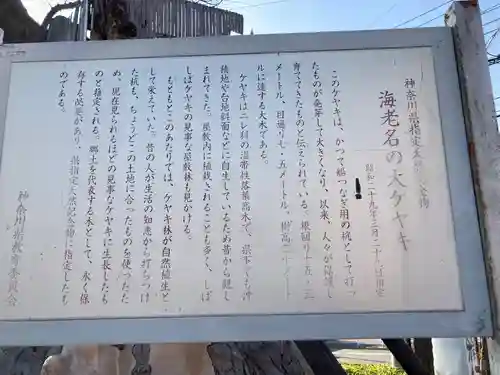 神奈川県指定天然記念物
海老名の大ケヤキ
昭和二十九年三月三十日指定
このケヤキは、かつて船つなぎ用の杭として打っ
たものが発芽して大きくなり、以来、人々が保護し
育ててきたものと伝えられている。根回り十五・三
メートル、目通り七・五メートル、樹高二十メート
ルに達する大木である。
ケヤキはニレ科の温帯性落葉高木で、県下でも沖
積地や台地斜面などに自生しているため昔から親し
まれてきた。屋敷内に植栽されることも多く、しば
しばケヤキの見事な屋敷林も見かける。
もともとこのあたりでは、ケヤキ林が自然植生と
して栄えていた。昔の人が生活の知恵から打ちつけ
た杭も、ちょうどこの土地に合ったものを使ったた
め、現在見られるほどの見事なケヤキに生長したも
のと推定される。郷土を代表する木として、永く保
存する必要があり、県指定天然記念物に指定したも
のである。
神奈川県教育委員会